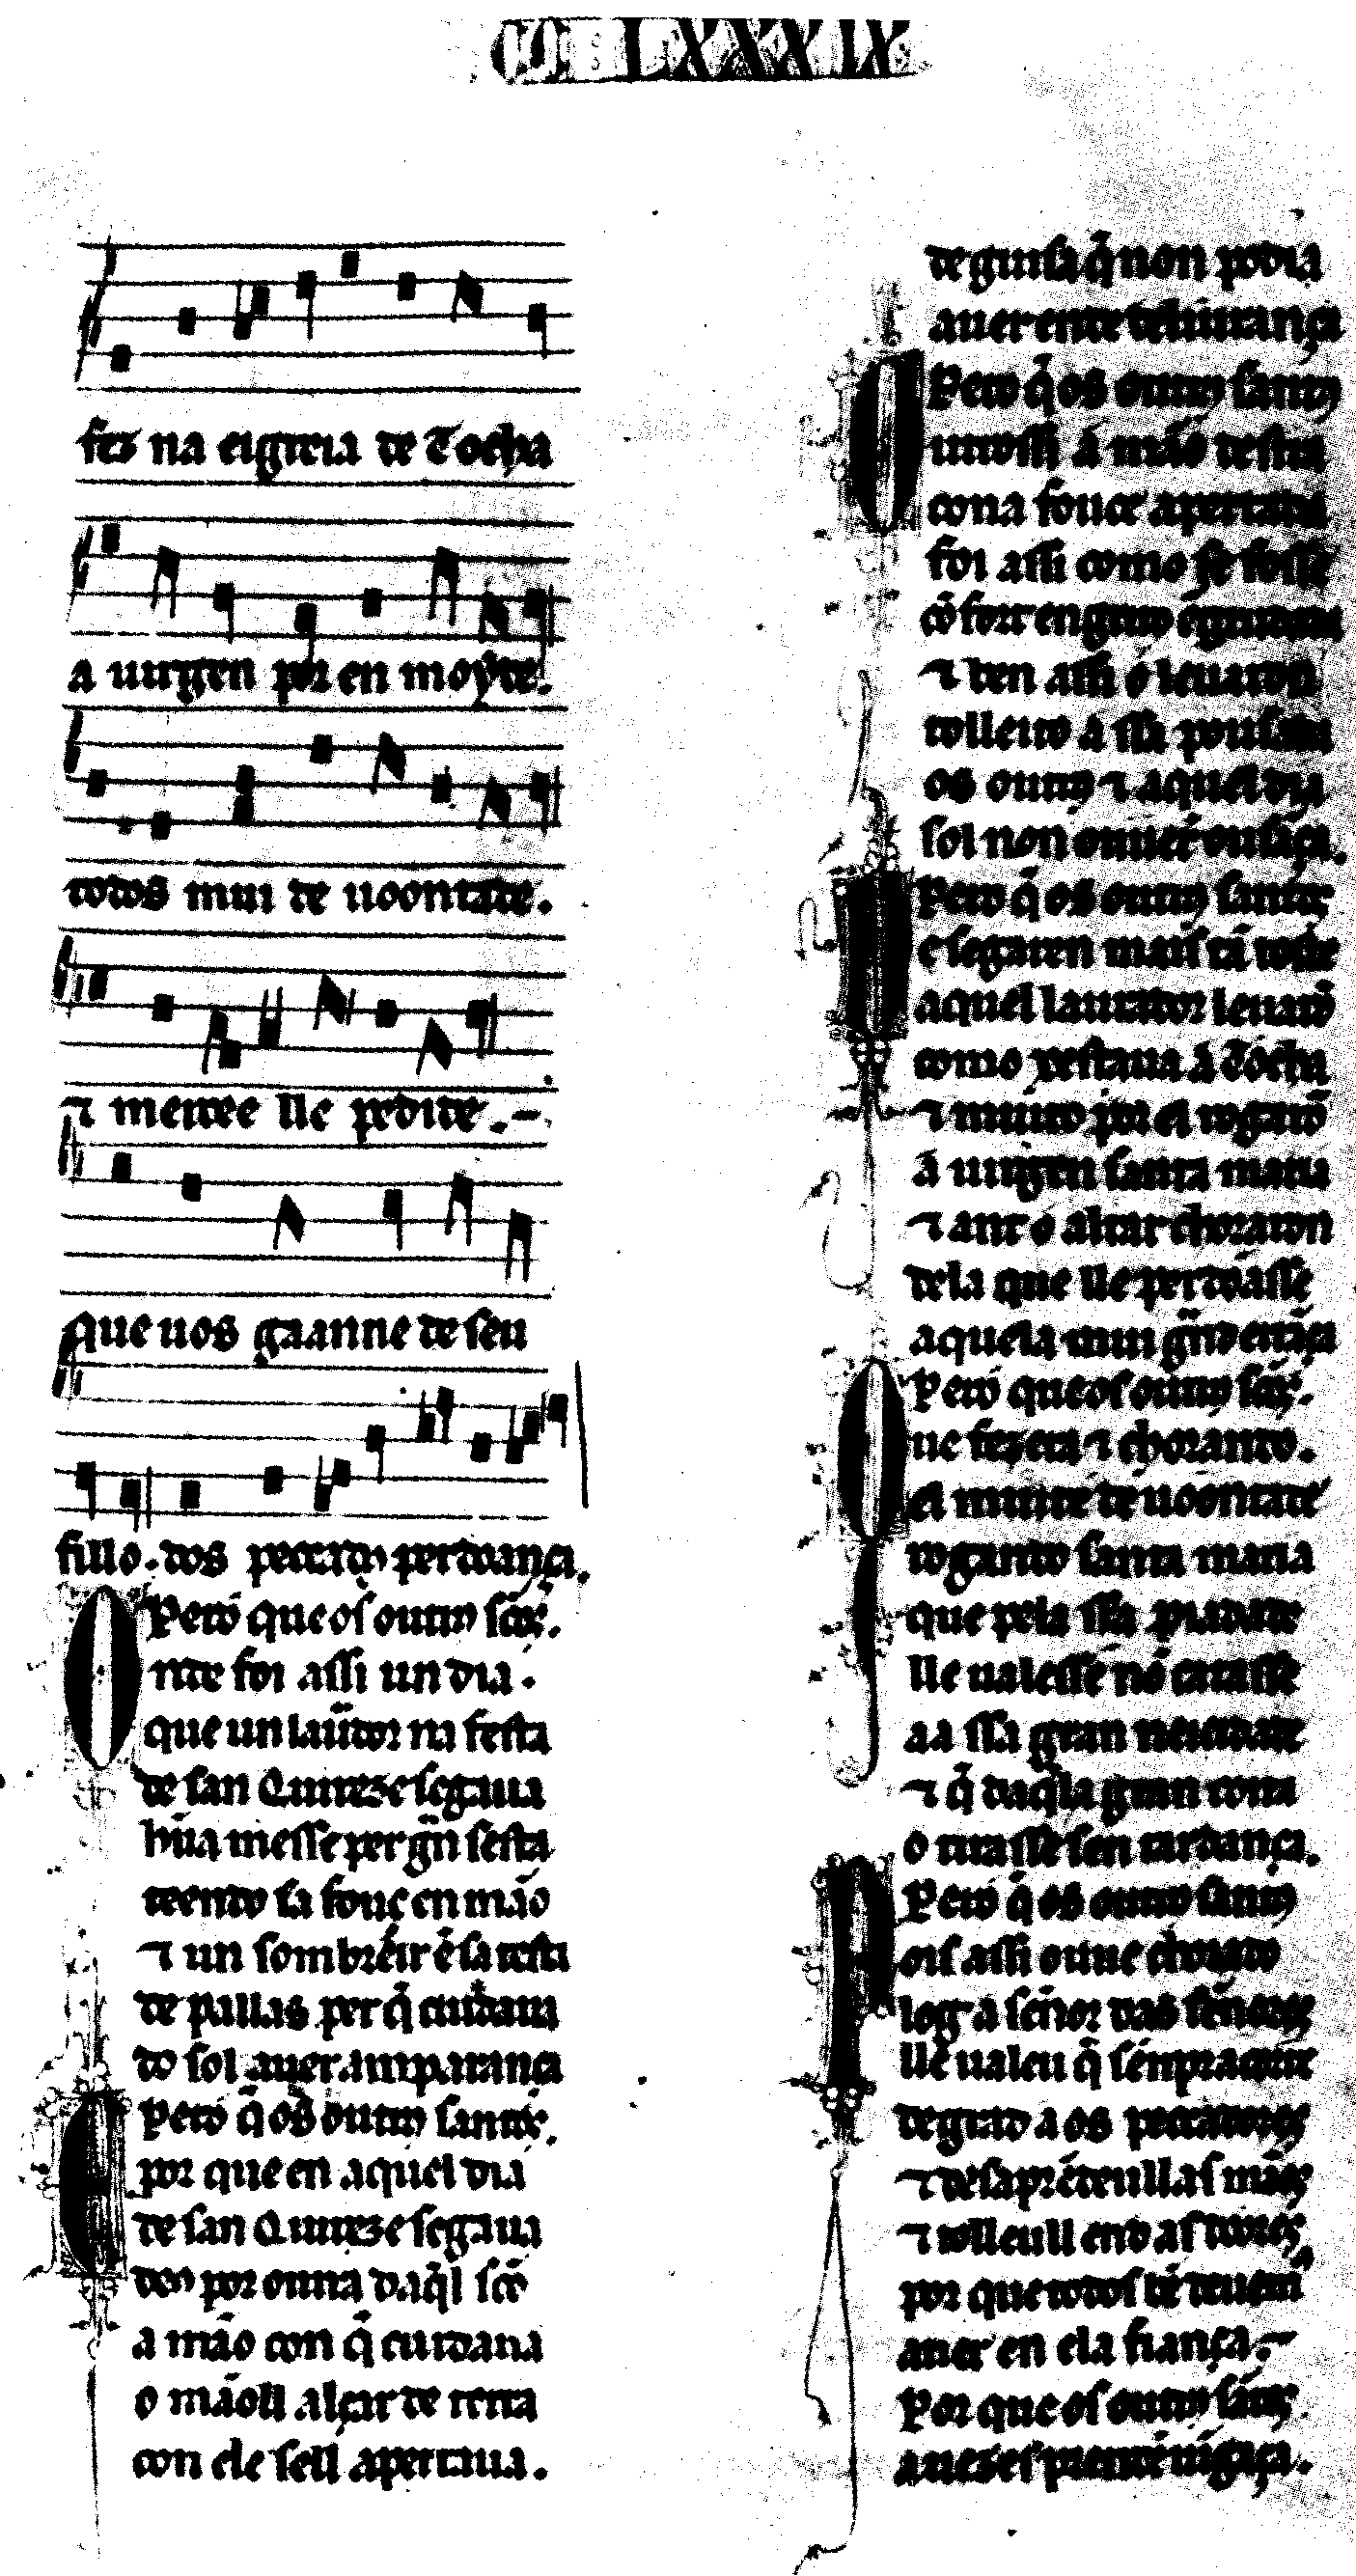 CCLXXXIX
fez na eigreia de Tocha
a uirgen por en moyte.
todos mui de uoontade.
⁊ mercee lle pedide.-
Que nos gaanne de seu
fillo. dos peccados perdoança.
Pero que os outros sãtos.
Onde foi assi un dia.
que un laurador na festa
de san Quireze segaua
hũa messe per grã sesta
teendo sa fouç en mão
⁊ un sombreir ẽ sa testa
de pallas per q̃ cuidaua
do sol auer amparança
Pero q̃ os outros santos.
E por que en aquel dia
de san Quireze segaua
deus por onrra daq̃l scõ
a mão con q̃ cuidaua
o mãoll alçar de terra
con ele sell apertaua.
de guisa q̃ non podia
auer ende deliurança
Pero q̃ os outros santos
O outrossi a mão destra
cona fouce apertada
foi assi como se fosse
cõ forte engrudo egrudada
⁊ ben assi o leuaron
tolleito a ssa pousada
os outros ⁊ aquel dia
sol non ouuerõ ousãça.
Pero q̃ os outros santos
E segaren mais tã toste
aquel laurador leuarõ
como vestaua a Tocha
⁊ muito por el rogarõ
a uirgen santa maria
⁊ ant o altar choraron
dela que lle perdõasse
aquela mui grãd errãça
Pero que os outros sãtos.
Que fezera ⁊ chorando.
el muit e de uoontade
rogando santa maria
que pela ssa piadade
lle ualesse nõ catasse
aa ssa gran neicidade
⁊ q̃ daq̃la gran coita
o tirasse sen tardança.
Pero q̃ os outros santos
Pois assi ouue chorado
log a señor das señores
lle ualeu q̃ senpr acorre
de grado aos peccadores
⁊ desaprẽdeull as mãos
⁊ tolleull end as doores
por que todos ben deuemos
auer en ela fiança.-
Por que os outros sãtos
a uezes prenden uĩgãça.